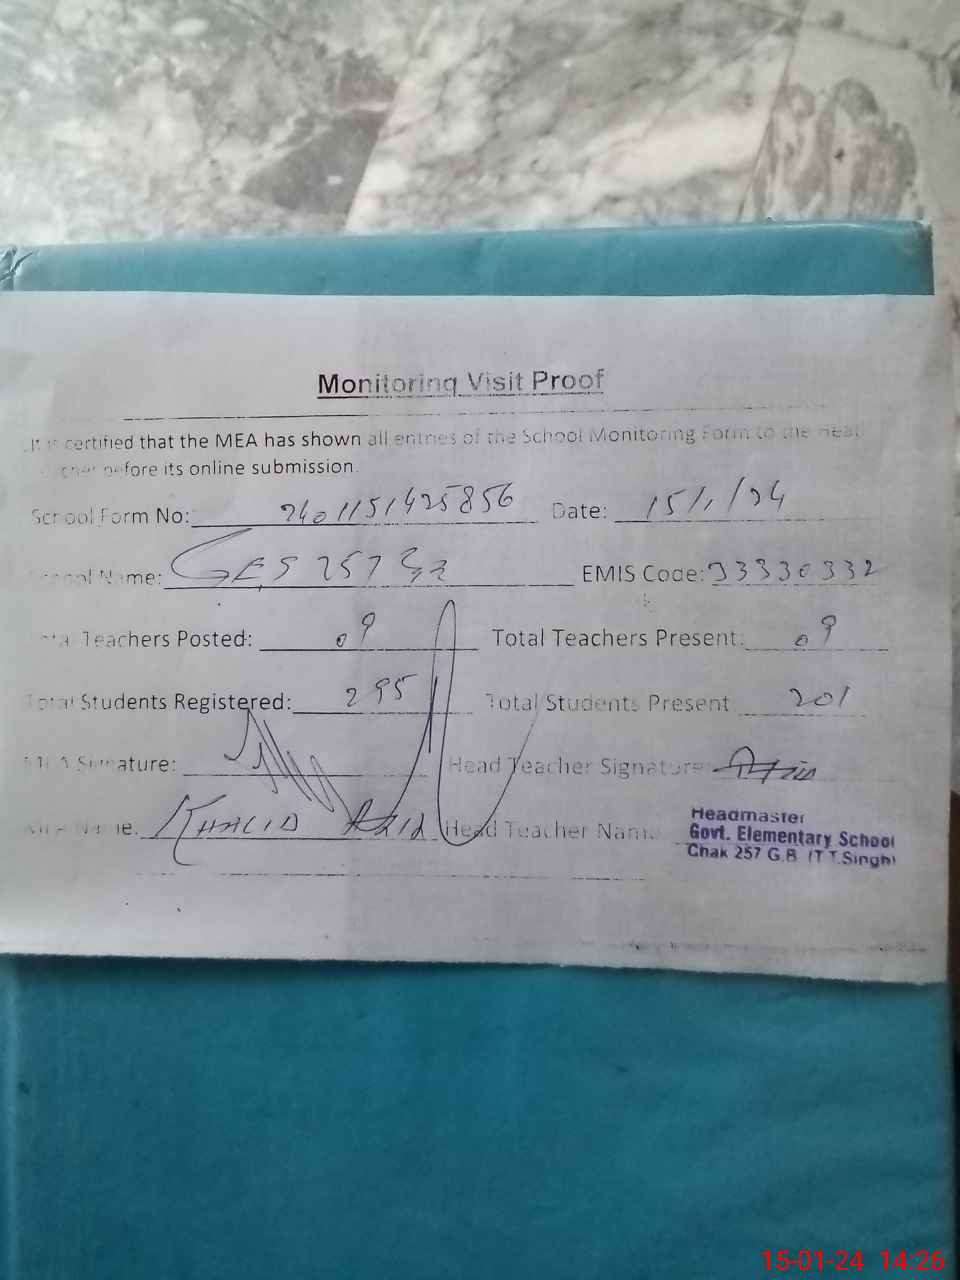 Monitoring Visit Proof
It is certified that the MEA has shown all entries of the School Monitoring Form to the Head
before its online submission.
School Form No: 2401151425856 Date: 15/1/24
School Name: GES 257 GB EMIS Code: 33330332
Total Teachers Posted: 09 Total Teachers Present: 09
Total Students Registered: 295 Total Students Present: 201
MEA Signature: Head Teacher Signature:
MEA Name: KHALID AZIZ Head Teacher Name:
Headmaster
Govt. Elementary School
Chak 257 G.B. (T.T.Singh)
15-01-24 14:26